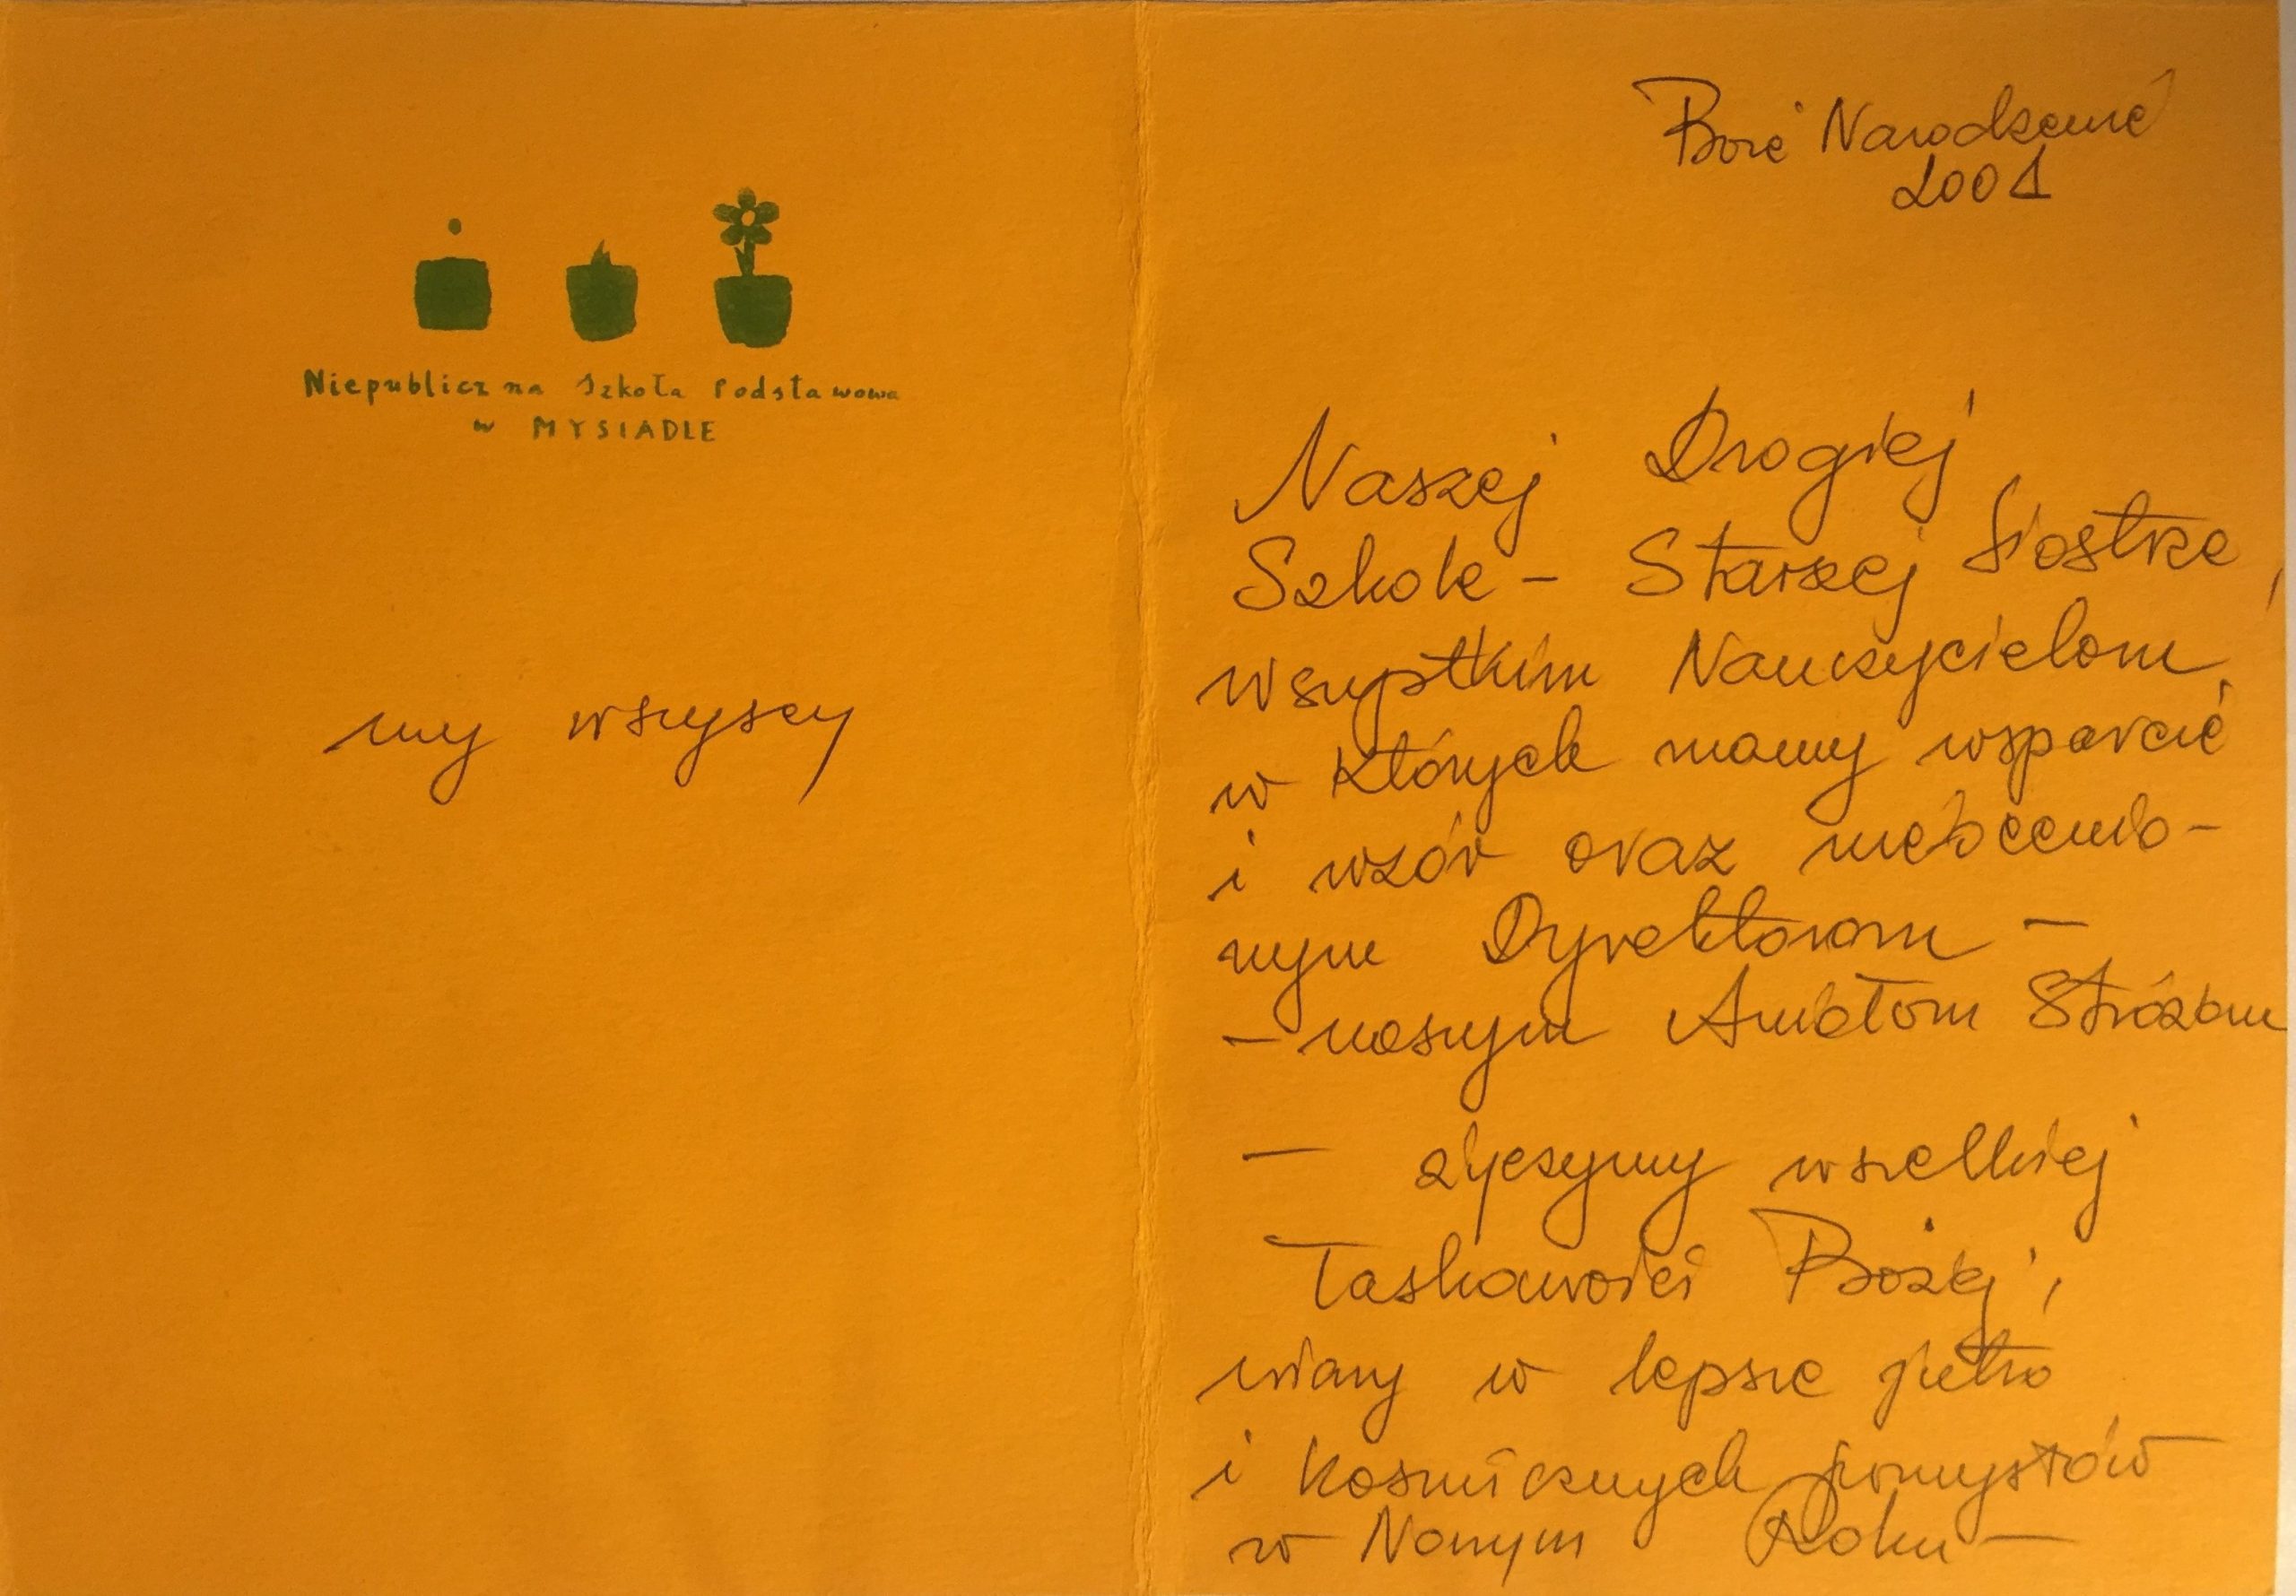 Niepubliczna Szkoła Podstawowa
w MYSIADLE
my wszyscy
Boże Narodzenie
2001
Naszej Drogiej
Szkole - Starszej Siostrze,
wszystkim Nauczycielom,
w których mamy wsparcie
i wzór oraz niebiewo-
nym Dyrektorom -
- naszym Aniołom Stróżom
- życzymy wszelkiej
Łaskawości Bożej,
wiary w lepsze jutro
i kosmicznych pomysłów
w Nowym Roku -